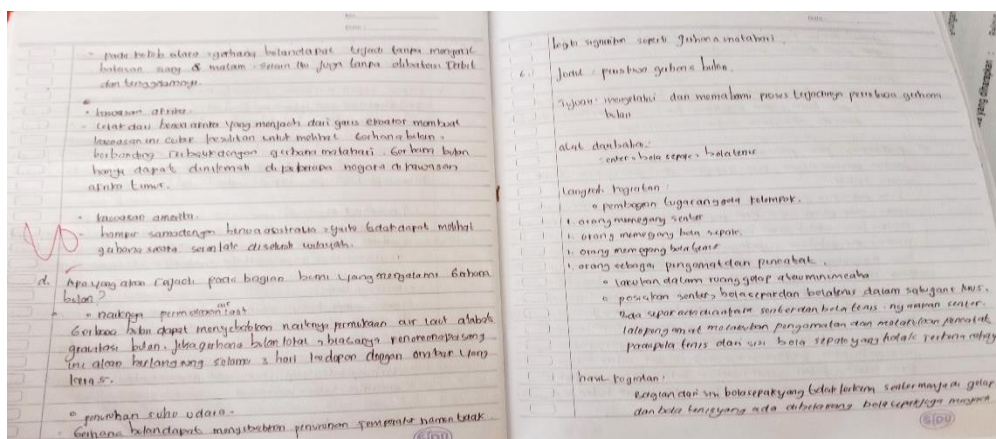 - pada kutub utara gerhana bulan dapat terjadi tanpa mengenal
batasan siang & malam. selain itu juga tanpa dibatasi terbit
dan tenggelamnya.
• kawasan afrika.
- letak dari benua afrika yang menjauh dari garis ekuator membuat
kawasan ini cukup kesulitan untuk melihat Gerhana bulan.
berbanding terbalik dengan gerhana matahari. Gerhana bulan
hanya dapat dinikmati di beberapa negara di kawasan
afrika timur.
• kawasan amerika.
- hampir sama dengan benua australia yaitu tidak dapat melihat
gerhana secara serentak diseluruh wilayah.
d. Apa yang akan terjadi pada bagian bumi yang mengalami Gerhana
bulan?
• naiknya permukaan air laut
Gerhana bulan dapat menyebabkan naiknya permukaan air laut akibat
gravitasi bulan. Jika gerhana bulan total, biasanya fenomena pasang
ini akan berlangsung selama 3 hari kedepan dengan ombak yang
keras.
• penurunan suhu udara.
- Gerhana bulan dapat mengakibatkan penurunan temperatur namun tidak
SIDU
begitu signifikan seperti gerhana matahari.
6. Judul : peristiwa gerhana bulan.
Tujuan : mengetahui dan memahami proses terjadinya peristiwa gerhana
bulan
alat dan bahan :
senter, bola sepak, bola tenis
Langkah kegiatan :
• pembagian tugas anggota kelompok.
1. orang memegang senter
1. orang memegang bola sepak.
1. orang memegang bola tenis
1. orang sebagai pengamat dan pencatat.
• lakukan dalam ruang gelap atau minim cahaya
• posisikan senter, bola sepak dan bola tenis dalam satu garis lurus.
bola sepak ada diantara senter dan bola tenis. nyalakan senter.
lalu pengamat melakukan pengamatan dan
tenis dan sisi bola sepak yang tidak terkena cahaya
hasil kegiatan :
Bagian dari sisi bola sepak yang tidak terkena senter menjadi gelap
dan bola tenis yang ada dibelakang bola sepak juga menjadi
SIDU
yang diharapkan